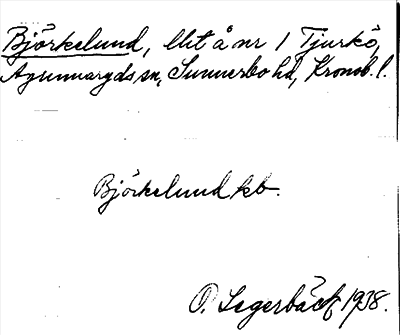 Björkelund, lht å nr 1 Tjurkö,
Agunnaryds sn, Sunnerbo hd, Kronob. l.
Björkelund kb.
O. Segerbäck 1938.